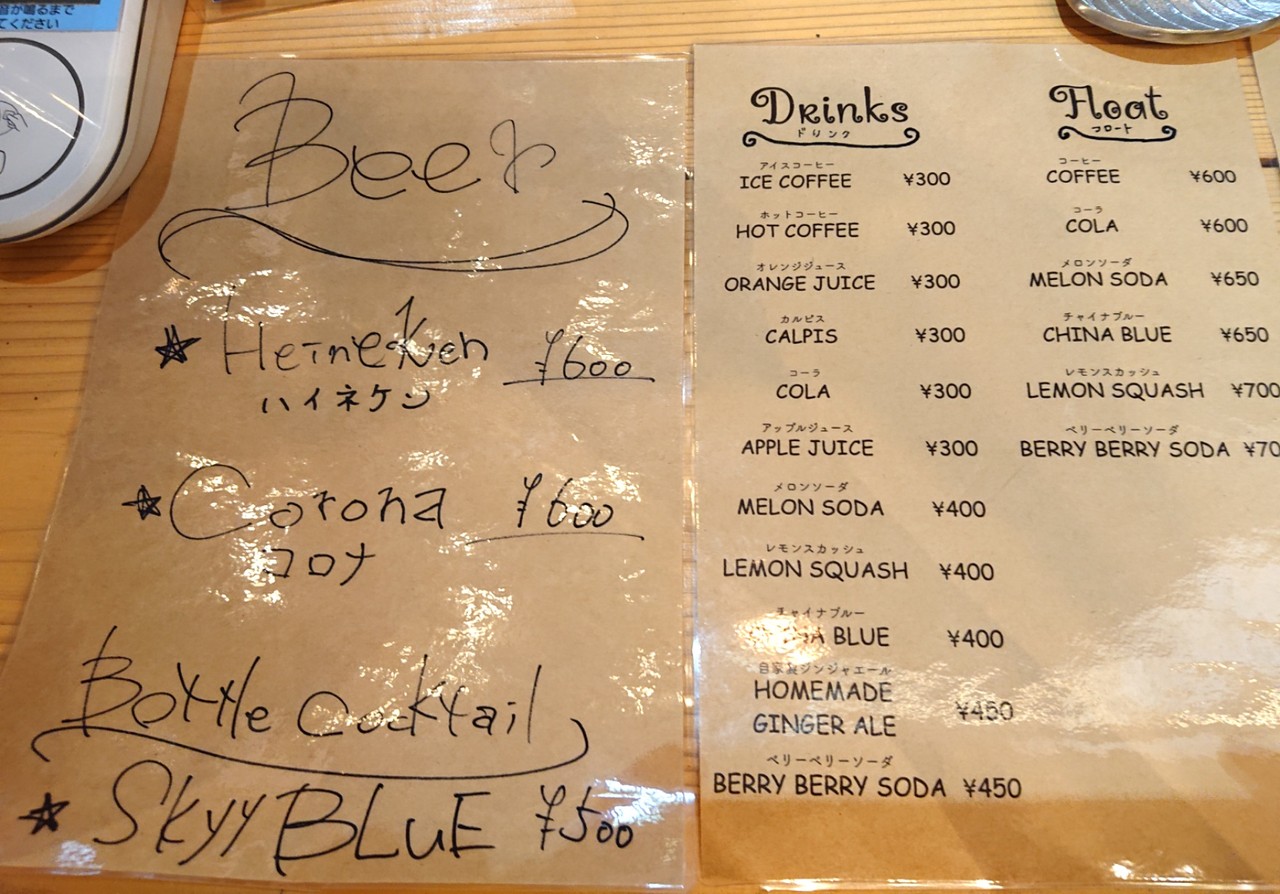 が鳴るまで
てください
Beer
★ Heineken ¥600
ハイネケン
★ Corona ¥600
コロナ
Bottle Cocktail
★ SKYY BLUE ¥500
Drinks
ドリンク
アイスコーヒー
ICE COFFEE ¥300
ホットコーヒー
HOT COFFEE ¥300
オレンジジュース
ORANGE JUICE ¥300
カルピス
CALPIS ¥300
コーラ
COLA ¥300
アップルジュース
APPLE JUICE ¥300
メロンソーダ
MELON SODA ¥400
レモンスカッシュ
LEMON SQUASH ¥400
チャイナブルー
BLUE ¥400
自家製ジンジャエール
HOMEMADE
GINGER ALE ¥450
ベリーベリーソーダ
BERRY BERRY SODA ¥450
Float
フロート
コーヒー
COFFEE ¥600
コーラ
COLA ¥600
メロンソーダ
MELON SODA ¥650
チャイナブルー
CHINA BLUE ¥650
レモンスカッシュ
LEMON SQUASH ¥700
ベリーベリーソーダ
BERRY BERRY SODA ¥70